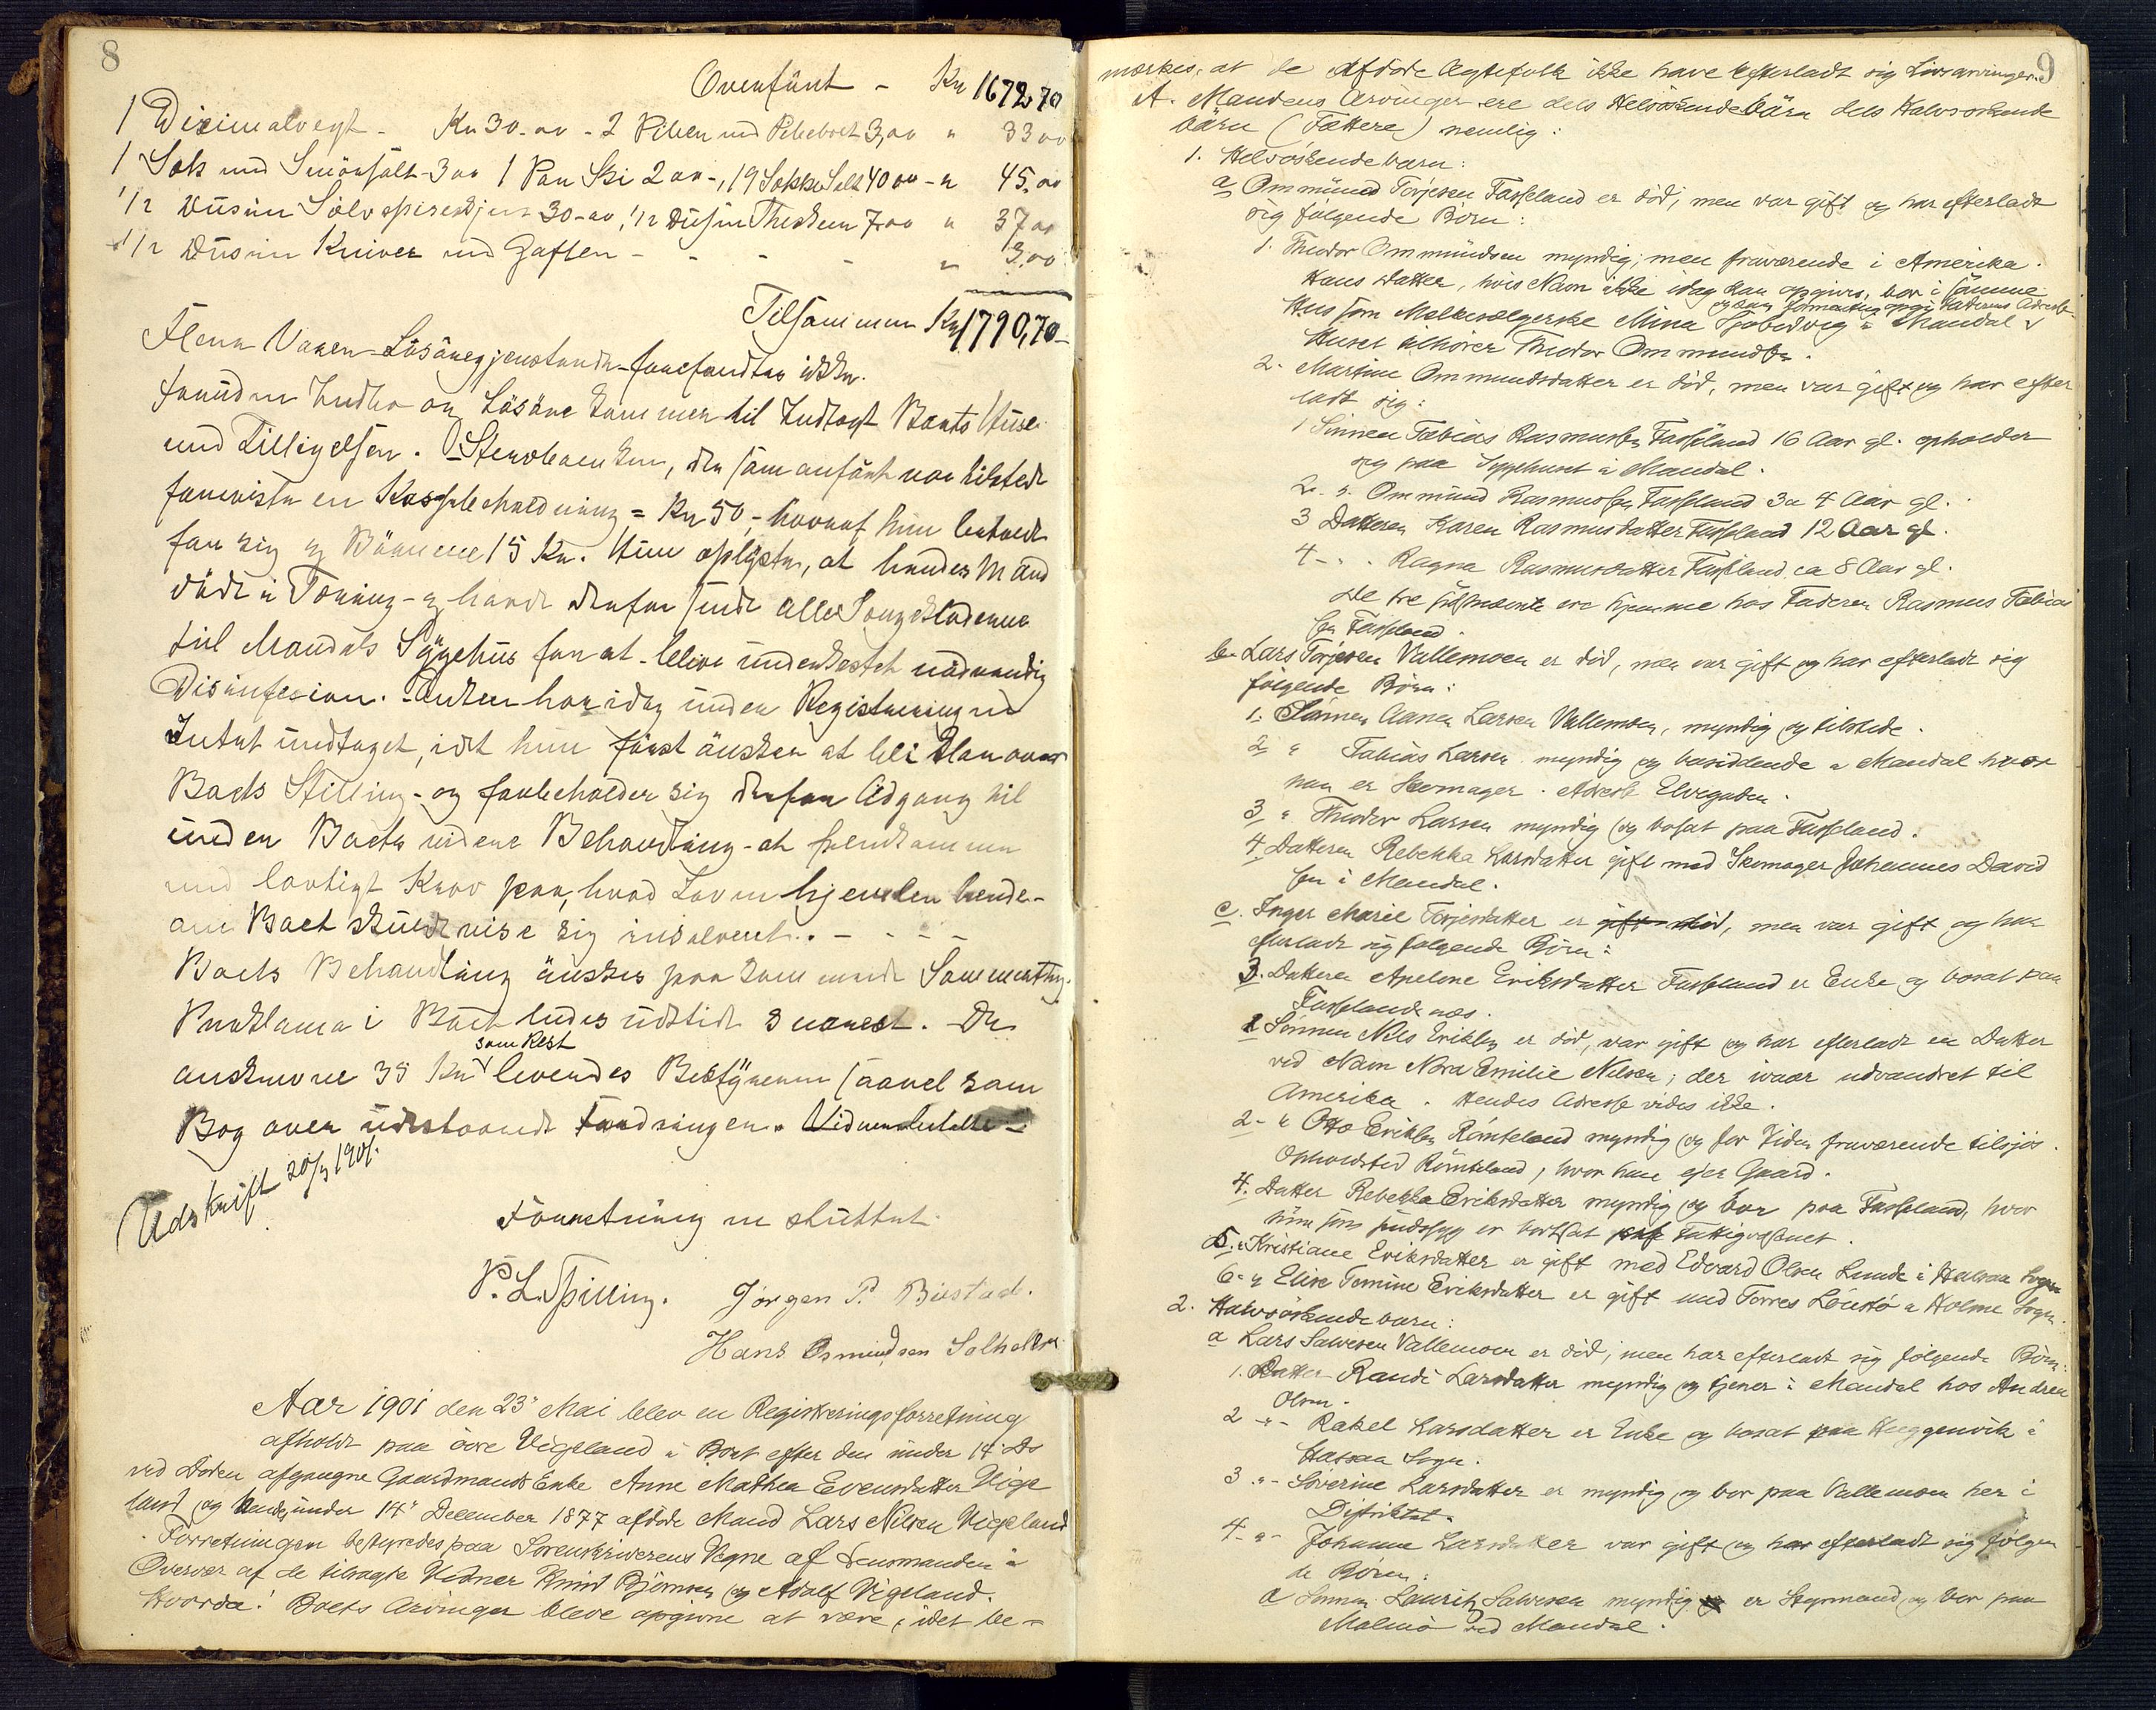 8
Overført - Kr 1672,70
1 Decimalvegt - Kr 30.00 - 2 Piber med 3,00 " 33 00
1 Sæk med 3 00 1 Par Ski 2 00 -, 19 Sække Salt 40 00 - " 45.00
1/2 Dusin Sølvspiseskjeer 30-00, 1/2 Dusin Theskeer 7,00 " 37 00
1/2 Dusin Kniver med Gafler - - - - " 3,00
Tilsammen Kr 1790,70 -
Flere Varer - Løsøregjenstande forefandtes ikke.
foruden og Løsøre kommer til Indtægt Boets Huse
med Tilliggelser. Stervboenken, der som anført var tilstede
foreviste en Kassebeholdning = Kr 50,- hvoraf hun beholdt
for sig og Børnene 15 Kr. Hun oplyste, at hendes Mand
døde i Tæring - og havde derfor sendt alle Sengeklæderne
til Mandals Sygehus for at blive underkastet nødvendig
Disinfesion. - Enken har idag under Registreringen
Intet undtaget, idet hun først ønsker at bli klar over
Boets Stilling - og forbeholder sig derfor Adgang til
under Boets videre Behandling - at fremkomme
med lovligt Krav paa, hvad Loven hjemler hende -
om Boet skulde vise sig insolvent. - - - -
Boets Behandling ønskes paa kommende Sommerting.
Proklama i Boet bedes udstedt snarest. - De
anskrevne 35 Kr som Rest leveredes Bestyreren saavel som
Bog over udestaaende Fordringer.
Udskrift 20/9 1901.
Forretningen sluttet.
P. L. Spilling. Jørgen P. Bustad.
Hans Osmundsen
Aar 1901 den 23' Mai blev en Registreringsforretning
afholdt paa øvre Vigeland i Boet efter den under 14' Ds
ved Døden afgangne Gaardmands Enke Anne Mathea Evensdatter Vige
land og hendes under 14' December 1877 afdøde Mand Lars Nilsen Vigeland
Forretningen bestyredes paa Sorenskriverens Vegne af Lensmanden i
Overvær af de tilsagte Vidner Knud Bjørnsen og Adolf Vigeland.
Hvorda! Boets Arvinger bleve opgivne at være, idet be-
9
mærkes, at de Afdøde Ægtefolk ikke have efterladt sig Livsarvinger.
A. Mandens Arvinger ere dels Helsøskendebørn dels Halvsøskende
børn (Fættere) nemlig:
1. Helsøskendebørn:
a Ommund Torjesen Fasseland er død, men var gift og har efterladt
sig følgende Børn:
1. Theodor Ommundsen myndig; men fraværende i Amerika.
Hans Datter, hvis Navn ikke idag kan opgives, bor i samme
og kan formentlig opgi Faderens Adresse
Hus som Melkesælgerske Mina i Mandal v
Huset tilhører Theodor Ommundsen.
2. Martine Ommundsdatter er død, men var gift og har efter
ladt sig:
1 Sønnen Tobias Rasmussen Fasseland 16 Aar gl. opholder
sig paa Sygehuset i Mandal.
2. s. Ommund Rasmussen Fasseland 3 a 4 Aar gl.
3 Datteren Karen Rasmusdatter Fasseland 12 Aar gl.
4 - . - Ragna Rasmusdatter Fasseland ca 8 Aar gl.
De tre sidstnævnte ere hjemme hos Faderen Rasmus Tobias
sen Fasseland.
b. Lars Torjesen Vallemoen er død, men var gift og har efterladt sig
følgende Børn:
1. Sønnen Aanen Larsen Vallemoen, myndig og tilstede.
2 " Tobias Larsen myndig og bosiddende i Mandal hvor
han er Skomager. Adresse Elvegaden.
3 " Theodor Larsen myndig og bosat paa Fasseland.
4 Datteren Rebekka Larsdatter gift med Skomager Johannes David
sen i Mandal.
c. Inger Marie Torjesdatter er gift død, men var gift og har
efterladt sig følgende Børn:
3. Datteren Apelone Eriksdatter Fasseland er Enke og bosat paa
Fasselandsnæs.
1 Sønnen Nils Eriksen er død, var gift og har efterladt en Datter
ved Navn Nora Emilie Nilsen; der iaar udvandret til
Amerika. Hendes Adresse vides ikke.
2 - " Otto Eriksen Rømteland myndig og for Tiden fraværende tilsjøs.
Opholdsted Rømteland, hvor han ejer Gaard.
4. Datter Rebekka Eriksdatter myndig og bor paa Fasseland, hvor
hun som sindssyg er bortsat af Fattigvæsnet.
5. " Kristiane Eriksdatter er gift med Edvard Olsen Lunde i Halsaa Sogn
6 - " Elise Tomine Eriksdatter er gift med Torres i Holme Sogn.
2. Halvsøskendebørn:
a Lars Salvesen Vallemoen er død, men har efterladt sig følgende Børn:
1. Datter Randi Larsdatter myndig og tjener i Mandal hos Andreas
Olsen.
2 - " - Rakel Larsdatter er Enke og bosat paa i
Halsaa Sogn.
3 - " - Severine Larsdatter er myndig og bor paa Vallemoen her i
Distriktet.
4 - " - Johanne Larsdatter var gift og har efterladt sig følgen
de Børn:
a Sønnen Lauritz Salvesen myndig og er Styrmand og bor paa
Malmø ved Mandal.